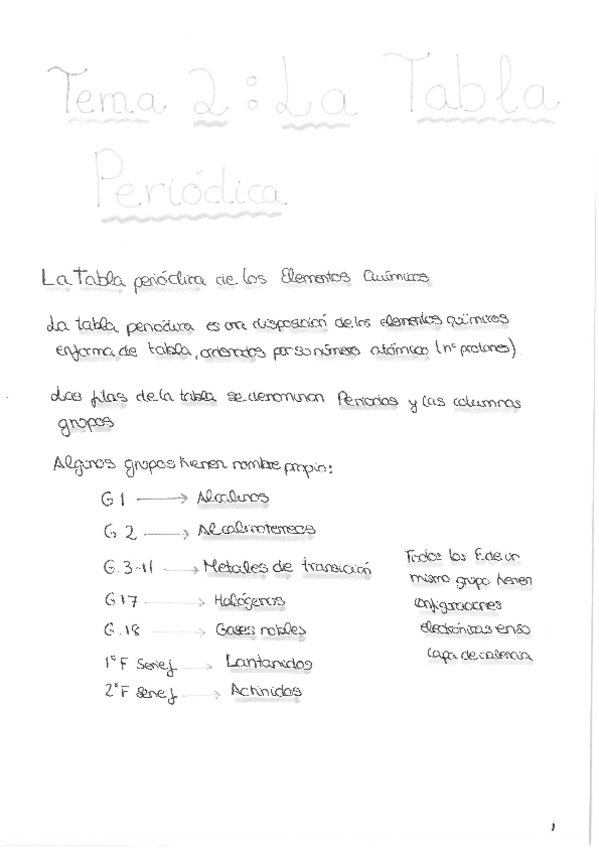 Tema 2: La Tabla
Periódica
La Tabla periódica de los Elementos Químicos
La tabla periódica es una disposición de los elementos químicos
en forma de tabla, ordenados por su número atómico (nº protones)
Las filas de la tabla se denominan Periodos y las columnas
grupos
Algunos grupos tienen nombre propio:
G 1 → Alcalinos
G 2 → Alcalinoterreos
G. 3-11 → Metales de transición
G 17 → Halógenos
G. 18 → Gases nobles
1ª F Serie f → Lantanidos
2ª F Serie f → Actinidos
Todos los E de un
mismo grupo tienen
configuraciones
electrónicas en su
capa de valencia
1